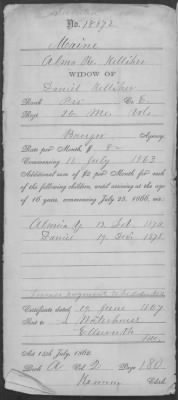 No. 18872
Maine
Alma R. Kelliher
WIDOW OF
Daniel Kelliher
Rank Pri Co. E
Regt 26 Me. Vols
Bangor Agency
Rate per Month, $ 8
Commencing 16 July 1863
Additional sum of $2 per Month for each
of the following children, until arriving at the age
of 16 years, commencing July 25, 1866, viz:
Almira
13 Feb. 1870
Daniel 19
Former payment to be deducted
Certificate dated 19 June 1867
Sent to
Waterhouse
Ellsworth
Me.
Act 14th July, 1862
Book A Vol. 2 Page 180
Clerk